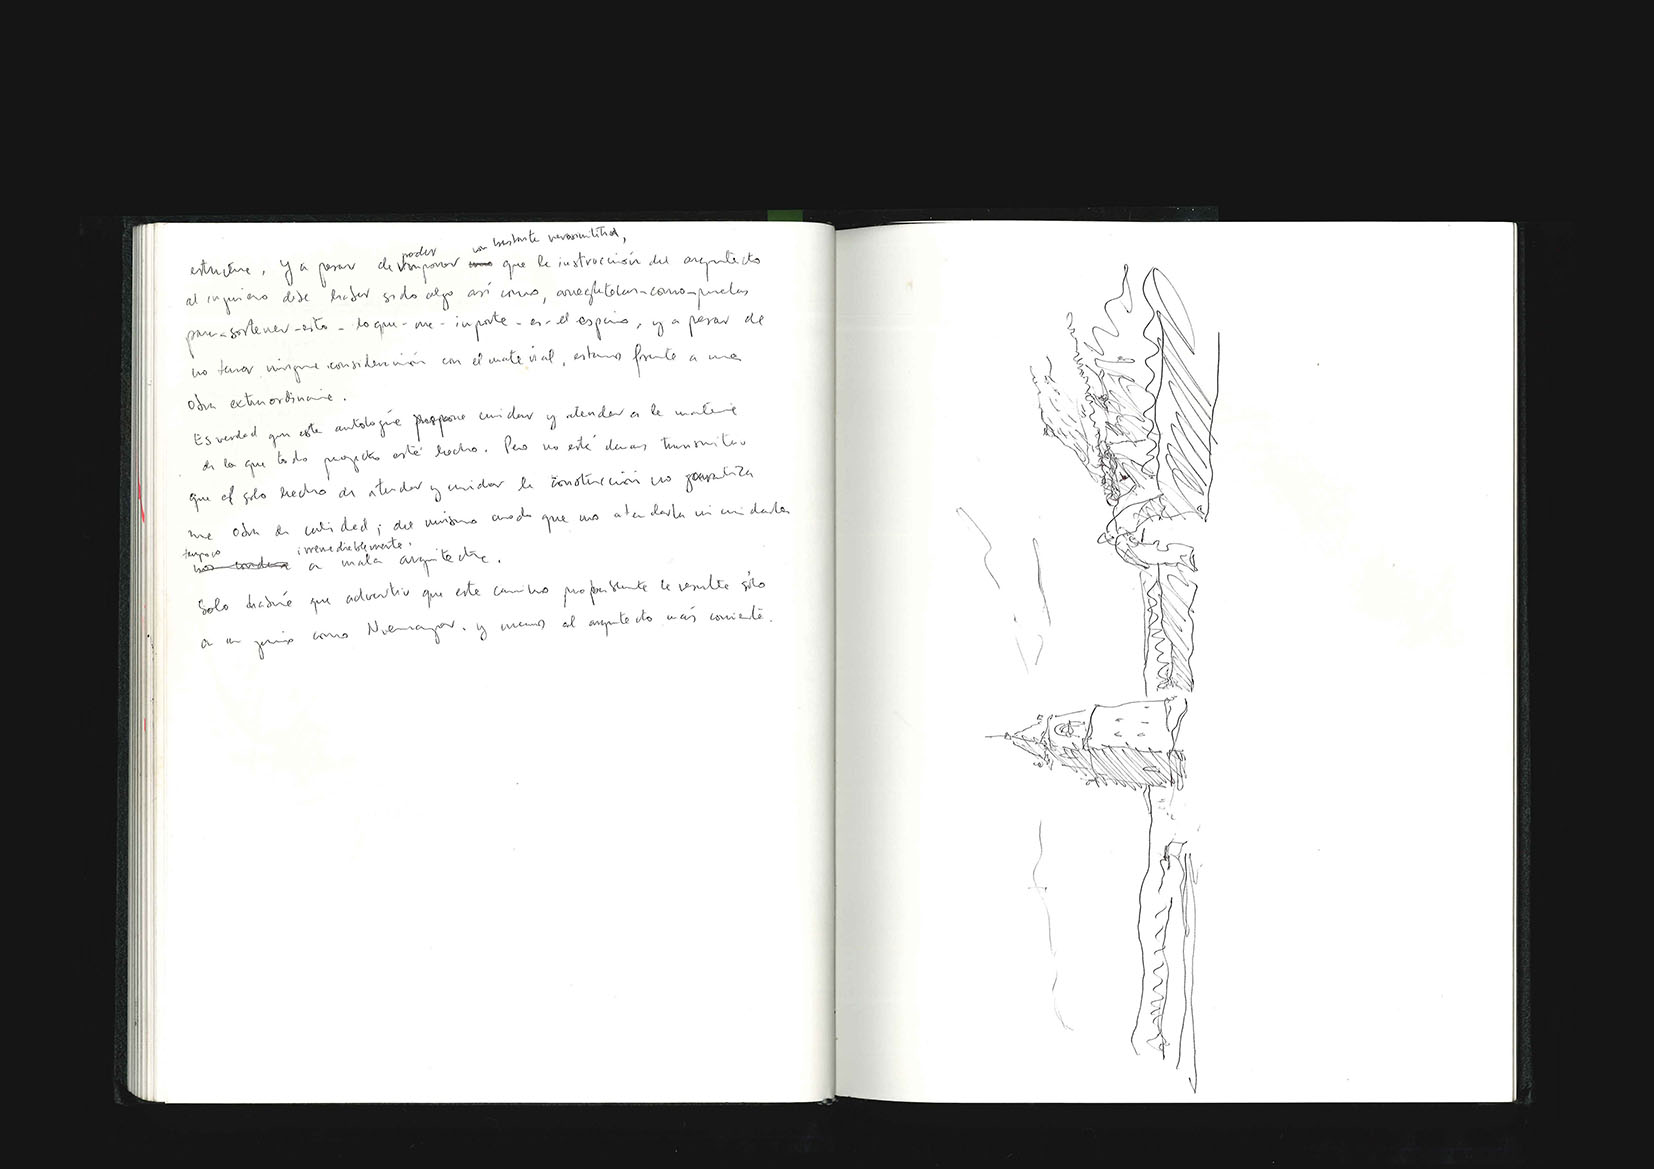 poder con bastante verosimilitud,
estructura, y a pesar de suponer que la instrucción del arquitecto
al ingeniero debe haber sido algo así como, arreglatelas-como-puedas
para-sostener-esto-lo que-me-importa-es-el espacio, y a pesar de
no tener ninguna consideración con el material, estamos frente a una
obra extraordinaria.
Es verdad que esta antología propone cuidar y atender a la materia
de la que todo proyecto está hecho. Pero no está demás transmitir
que el solo hecho de atender y cuidar la construcción no garantiza
una obra de calidad; del mismo modo que no atenderla ni cuidarla
tampoco irremediablemente.
a mala arquitectura.
Solo habré que advertir que este camino probablemente le resulte sólo
a un genio como Niemeyer. y menos al arquitecto más corriente.